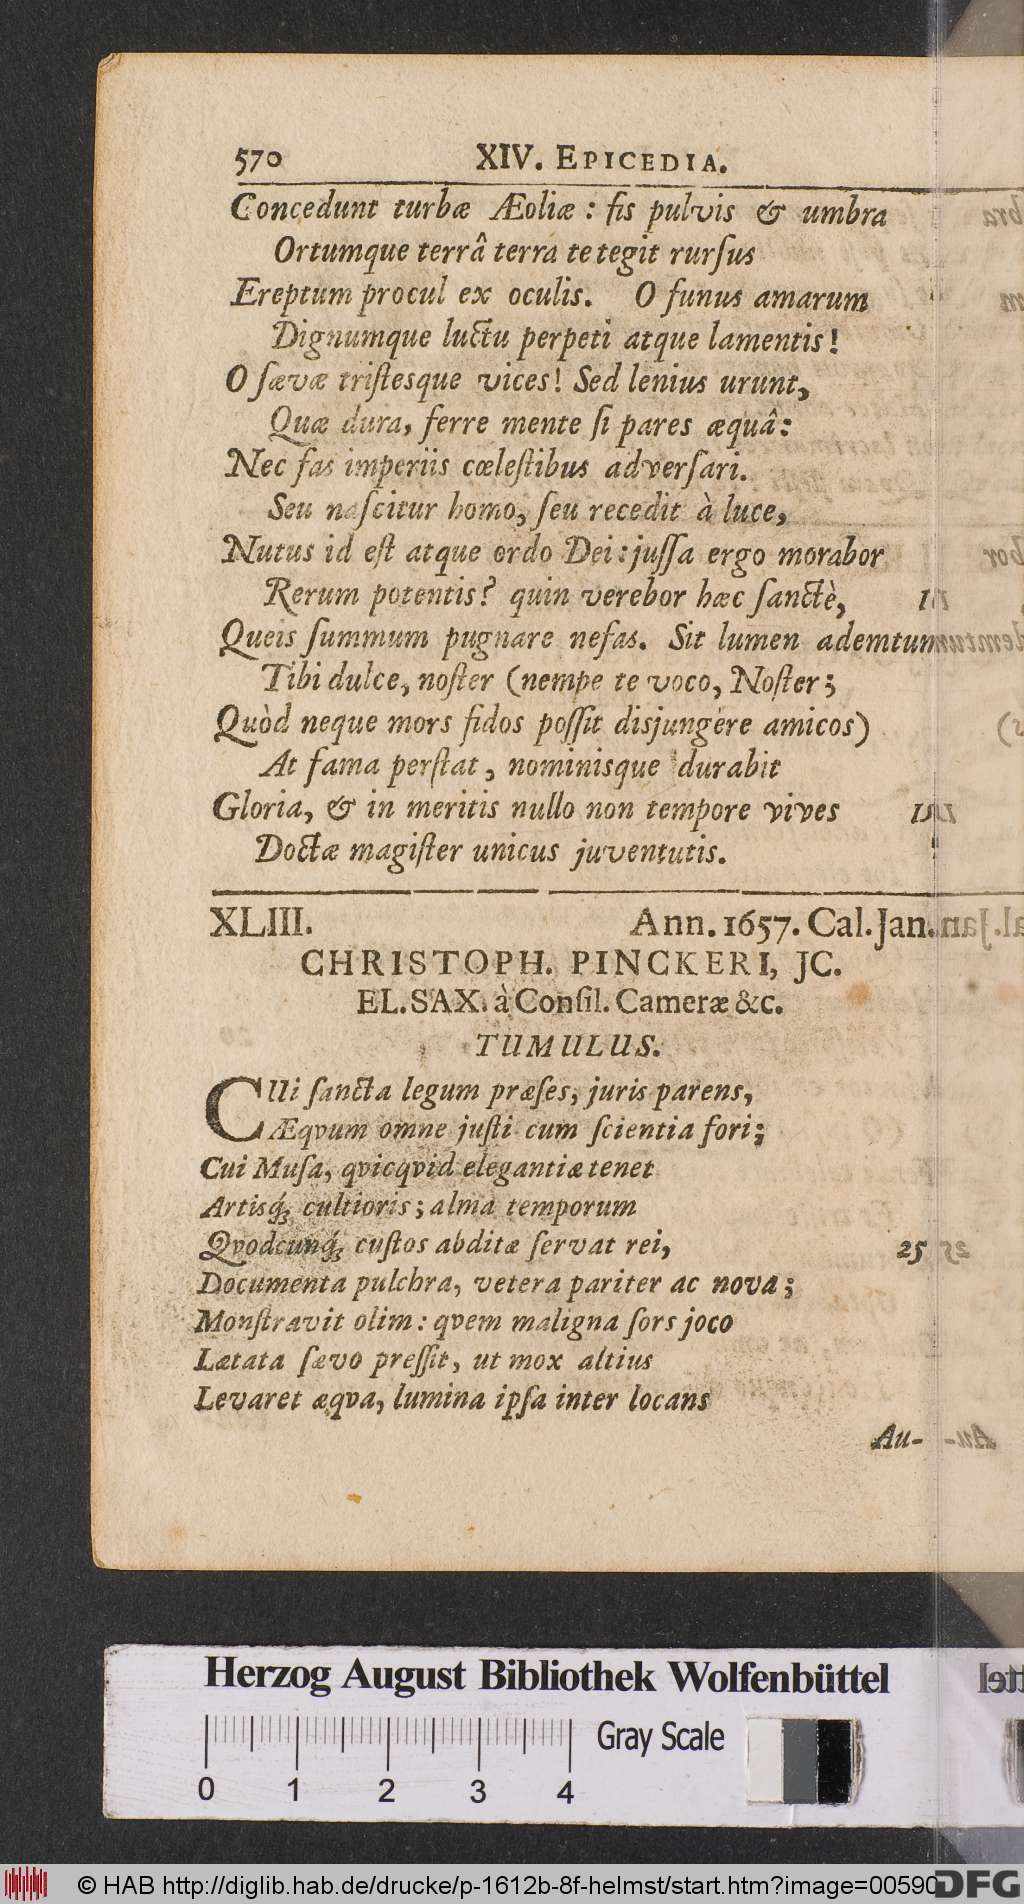 570 XIV. EPICEDIA.
Concedunt turbæ Æoliæ : fis pulvis & umbra
Ortumque terrâ terra te tegit rurſus
Ereptum procul ex oculis. O funus amarum
Dignumque luctu perpeti atque lamentis!
O ſævæ triſtesque vices! Sed lenius urunt,
Quæ dura, ferre mente ſi pares æquâ:
Nec fas imperiis cœleſtibus adverſari.
Seu naſcitur homo, ſeu recedit à luce,
Nutus id eſt atque ordo Dei: juſſa ergo morabor
Rerum potentis? quin verebor hæc ſanctè,
Queis ſummum pugnare nefas. Sit lumen ademtum
Tibi dulce, noſter (nempe te voco, Noſter;
Quòd neque mors fidos poſſit disjungere amicos)
At fama perſtat, nominisque durabit
Gloria, & in meritis nullo non tempore vives
Doctæ magiſter unicus juventutis.
XLIII. Ann. 1657. Cal. Jan.
CHRISTOPH. PINCKERI, JC.
EL. SAX. à Conſil. Cameræ &c.
TUMULUS.
CUi ſancta legum præſes, juris parens,
Æqvum omne juſti cum ſcientia fori;
Cui Muſa, qvicqvid elegantiæ tenet
Artisq́; cultioris; alma temporum
Qvodcunq́; cuſtos abditæ ſervat rei, 25
Documenta pulchra, vetera pariter ac nova;
Monſtravit olim: qvem maligna ſors joco
Lætata ſævo preſſit, ut mox altius
Levaret æqva, lumina ipſa inter locans
Au-
Herzog August Bibliothek Wolfenbüttel
Gray Scale
0 1 2 3 4
© HAB http://diglib.hab.de/drucke/p-1612b-8f-helmst/start.htm?image=00590
DFG